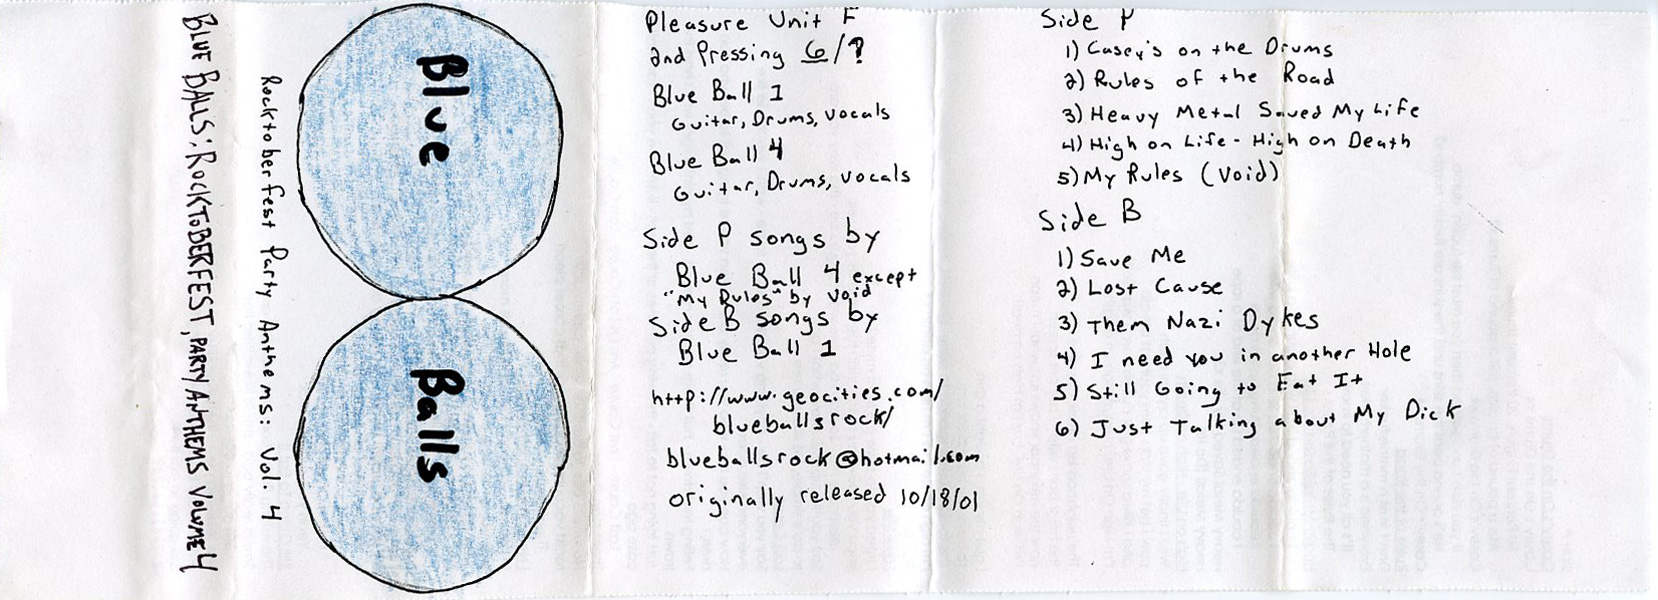 BLUE BALLS: ROCKTOBERFEST, PARTY ANTHEMS VOLUME 4
Rocktoberfest Party Anthems: Vol. 4
Blue
Balls
Pleasure Unit F
2nd Pressing 6/?
Blue Ball 1
Guitar, Drums, vocals
Blue Ball 4
Guitar, Drums, vocals
Side P songs by
Blue Ball 4 except
"My Rules" by Void
Side B songs by
Blue Ball 1
http://www.geocities.com/
blueballsrock/
blueballsrock@hotmail.com
originally released 10/18/01
Side P
1) Casey's on the Drums
2) Rules of the Road
3) Heavy Metal Saved My Life
4) High on Life - High on Death
5) My Rules (Void)
Side B
1) Save Me
2) Lost Cause
3) Them Nazi Dykes
4) I need you in another Hole
5) Still Going to Eat It
6) Just Talking about My Dick